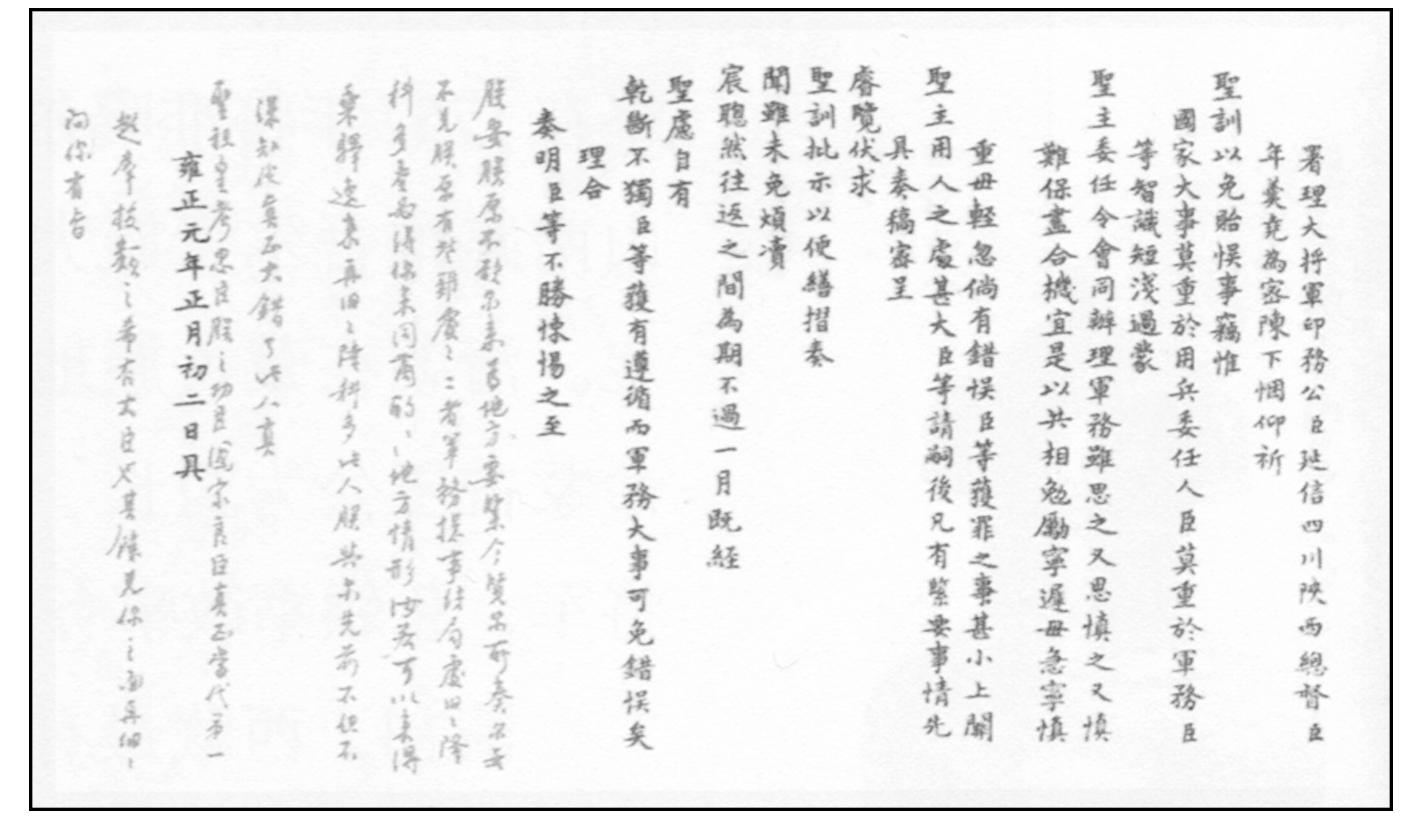 署理大將軍印務公臣延信四川陝西總督臣
年羹堯為密陳下悃仰祈
聖訓以免貽悞事竊惟
國家大事莫重於用兵委任人臣莫重於軍務臣
等智識短淺過蒙
聖主委任令會同辦理軍務雖思之又思慎之又慎
難保盡合機宜是以共相勉勵寧遲毋急寧慎
重毋輕忽倘有錯悞臣等獲罪之事甚小上關
聖主用人之處甚大臣等請嗣後凡有緊要事情先
具奏稿密呈
睿覽伏求
聖訓批示以便繕摺奏
聞雖未免煩瀆
宸聰然往返之間為期不過一月既經
聖慮自有
乾斷不獨臣等獲有遵循而軍務大事可免錯悞矣
理合
奏明臣等不勝悚惕之至
朕安朕原不欲爾來為地方要緊今覽爾所奏爾若
不見朕原有些難處之二者軍務總事結局處舅舅隆
科多奏必得你來同商酌商酌地方情形汝若可以來得
乘驛速來再舅舅隆科多此人朕與爾先前不但不
深知他真正大錯了此人真
聖祖皇考忠臣朕之功臣國家良臣真正當代第一
超群拔類之希有大臣也其餘見你之面再細細
問你有旨
雍正元年正月初二日具